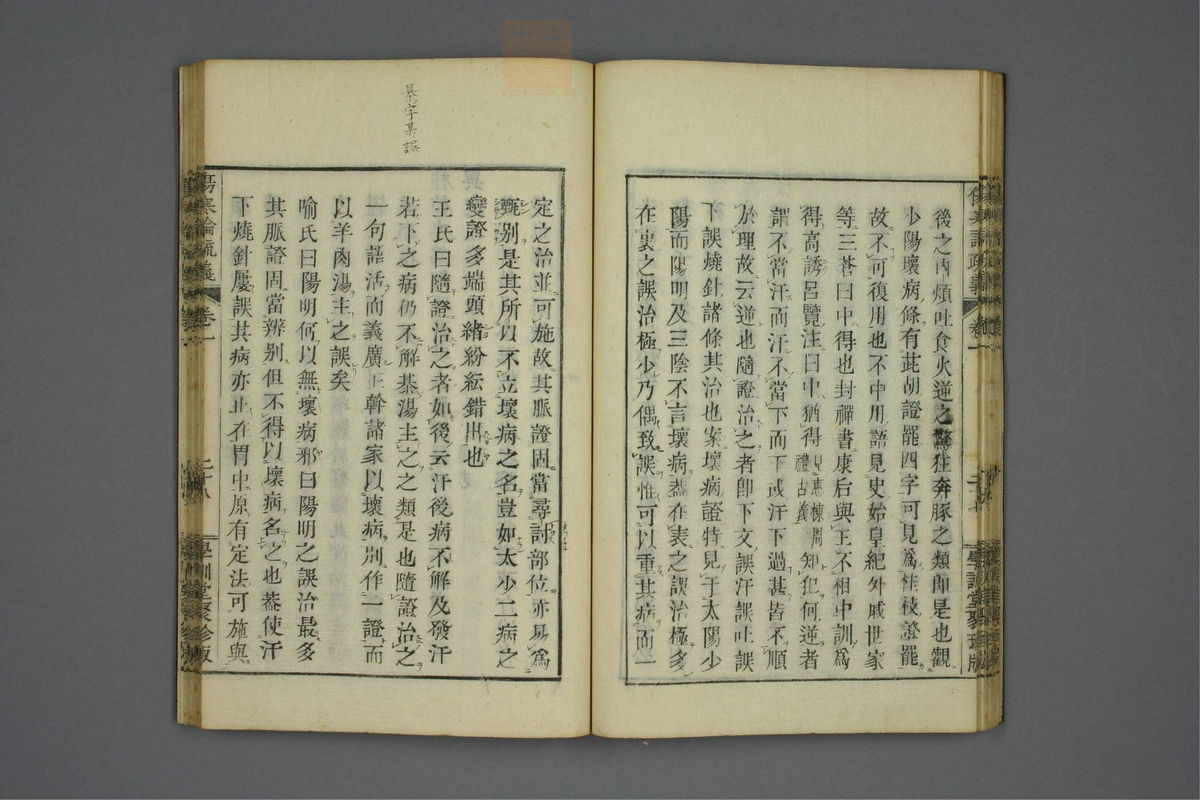 後之內煩吐食火逆之驚狂奔豚之類即是也觀
少陽壞病條有茈胡證罷四字可見為桂枝證罷
故不可復用也不中用語見史始皇紀外戚世家
等三蒼曰中得也封禪書康后與王不相中訓為
得高誘呂覽注曰中猶得見惠棟周禮古義知犯何逆者
謂不當汗而汗不當下而下或汗下過甚皆不順
於理故云逆也隨證治之者即下文誤汗誤吐誤
下誤燒針諸條其治也案壞病證特見于太陽少
陽而陽明及三陰不言壞病蓋在表之誤治極多
在裏之誤治極少乃偶致誤惟可以重其病而一
傷寒論疏義
卷一
學訓堂聚珍版
定之治並可施故其脈證固當尋討部位亦易為
甄別是其所以不立壞病之名豈如太少二病之
變證多端頭緒紛紜錯出也
王氏曰隨證治之者如後云汗後病不解及發汗
若下之病仍不解某湯主之之類是也隨證治之
一句語活而義廣王幹諸家以壞病別作一證而
以羊肉湯主之誤矣
喻氏曰陽明何以無壞病邪曰陽明之誤治最多
其脈證固當辨別但不得以壞病名之也蓋使汗
下燒針屢誤其病亦止在胃中原有定法可施與
傷寒論疏義
卷一
二十八
學訓堂聚珍版